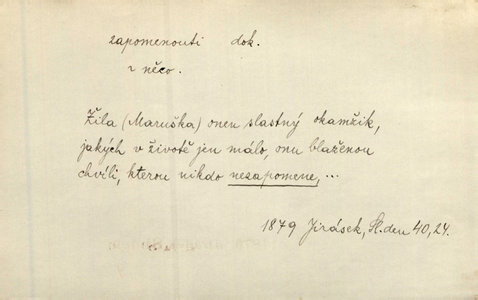 zapomenouti dok.
něco.
Žila (Maruška) onen slastný okamžik,
jakých v životě jen málo, onu blaženou
chvíli, kterou nikdo nezapomene, ...
1879 Jirásek, Sl. den 40, 24.